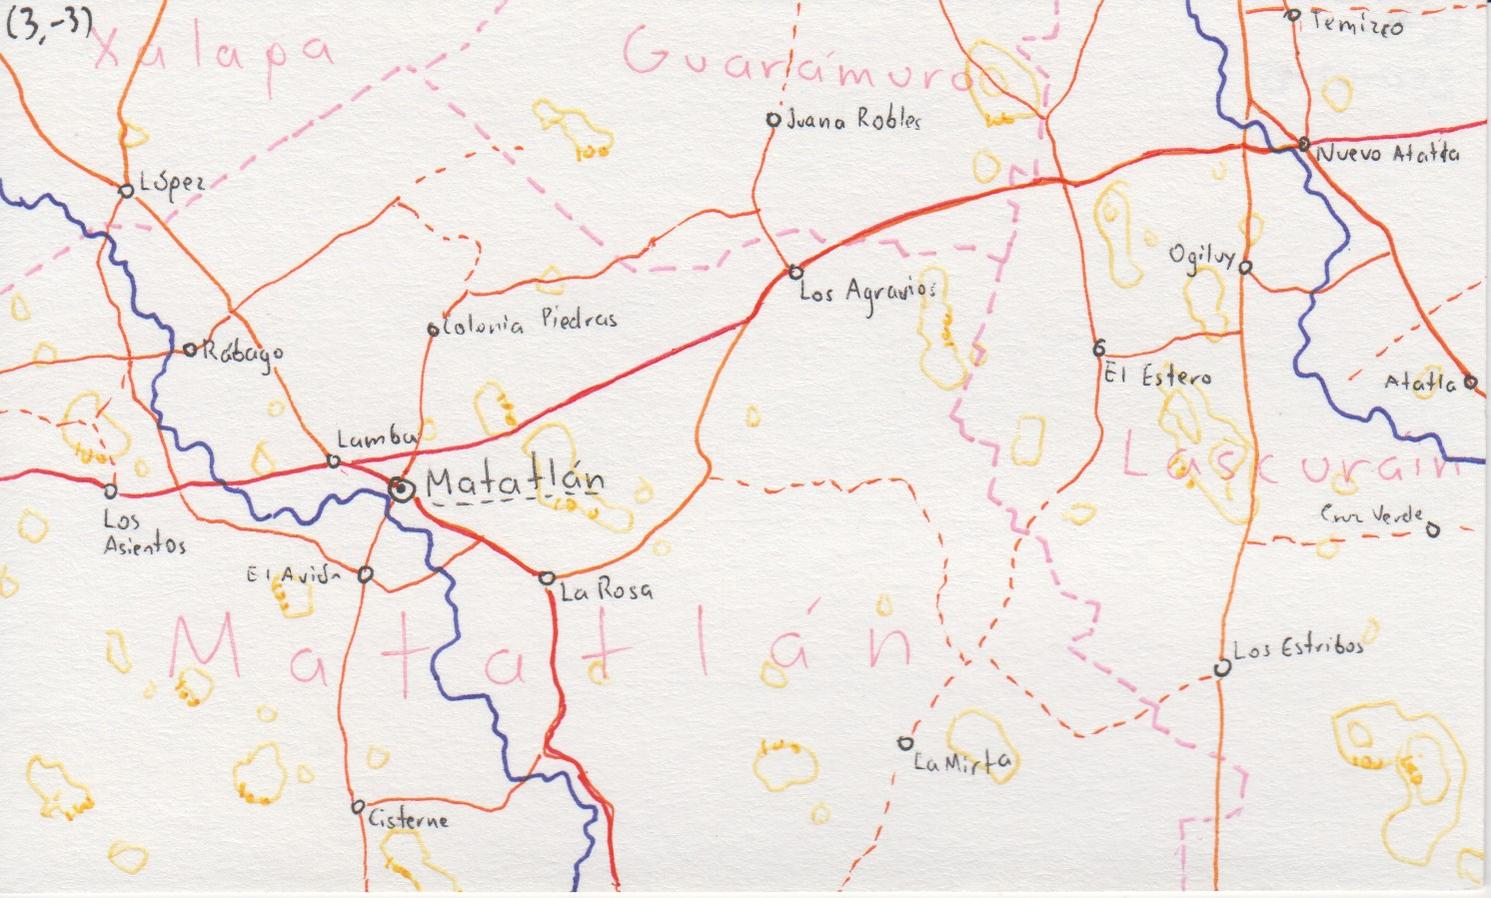 (3,-3)
Xalapa
Guarámuro
Temizco
Juana Robles
Nuevo Atatla
López
Ogilvy
Los Agravios
Colonia Piedras
Rábago
El Estero
Atatla
Lamba
Lascuráin
Matatlán
Los
Asientos
Cruz Verde
El Avión
La Rosa
Matatlán
Los Estribos
La Mirta
Cisterne